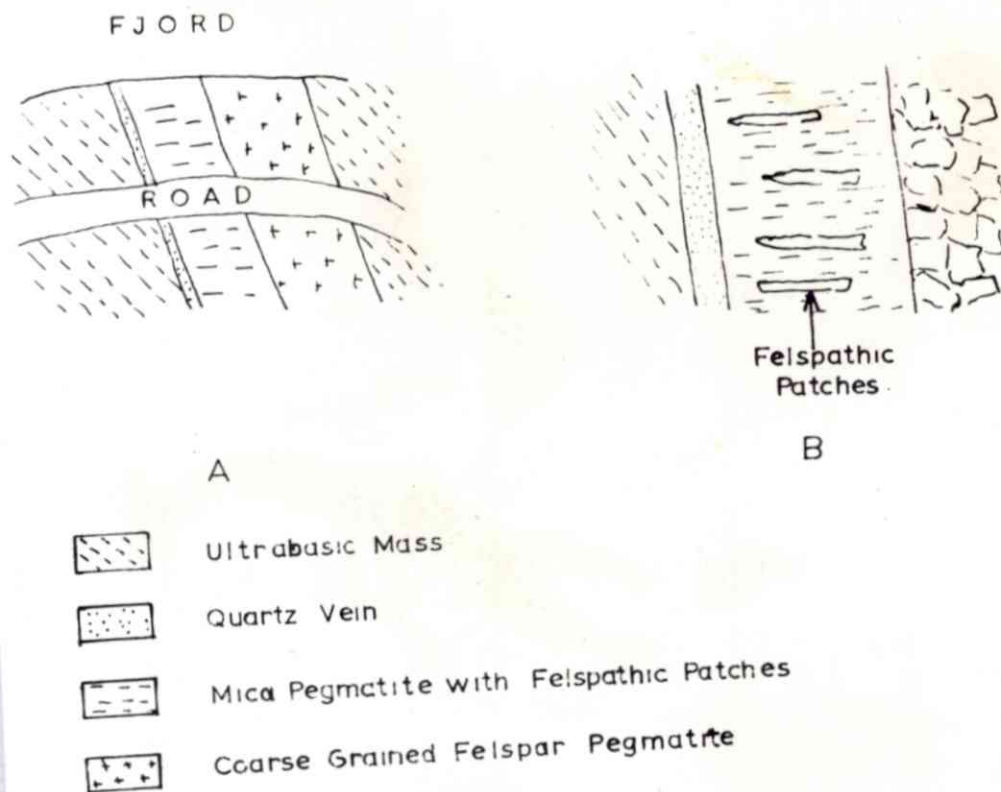 FJORD
ROAD
Felspathic
Patches
A
B
Ultrabasic Mass
Quartz Vein
Mica Pegmatite with Felspathic Patches
Coarse Grained Felspar Pegmatite